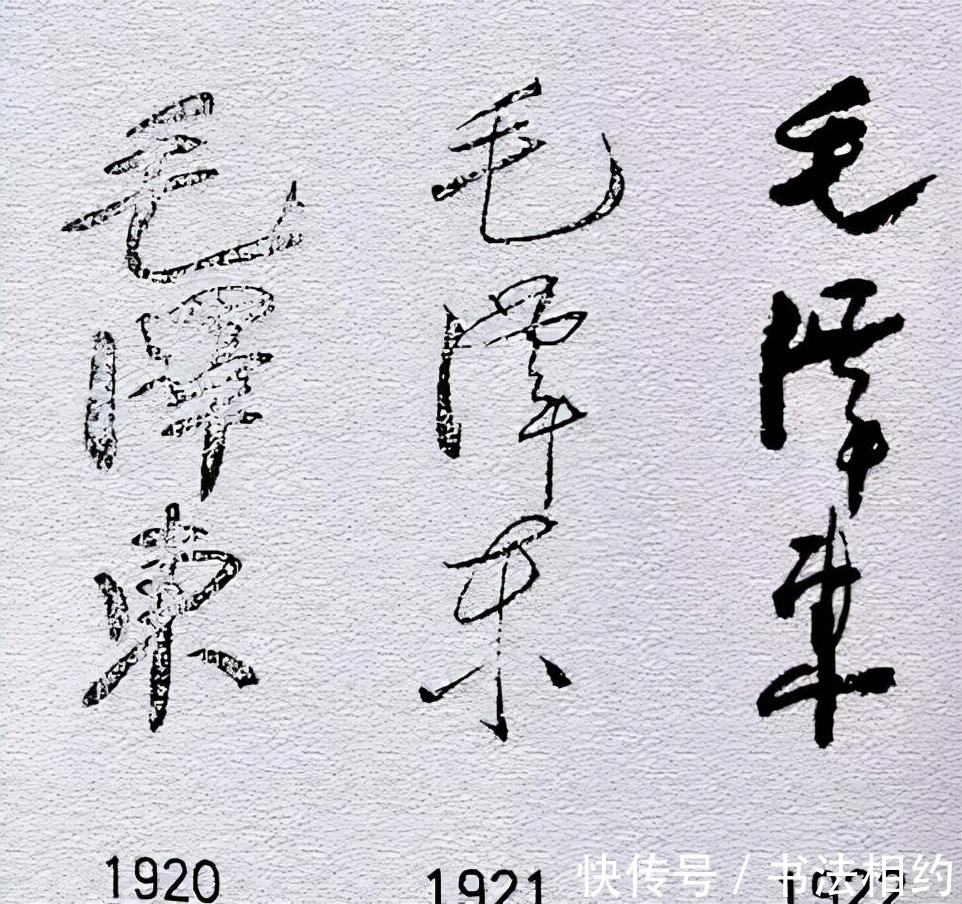 毛澤東
毛澤東
毛澤東
1920
1921
1922
快传号 / 书法相约